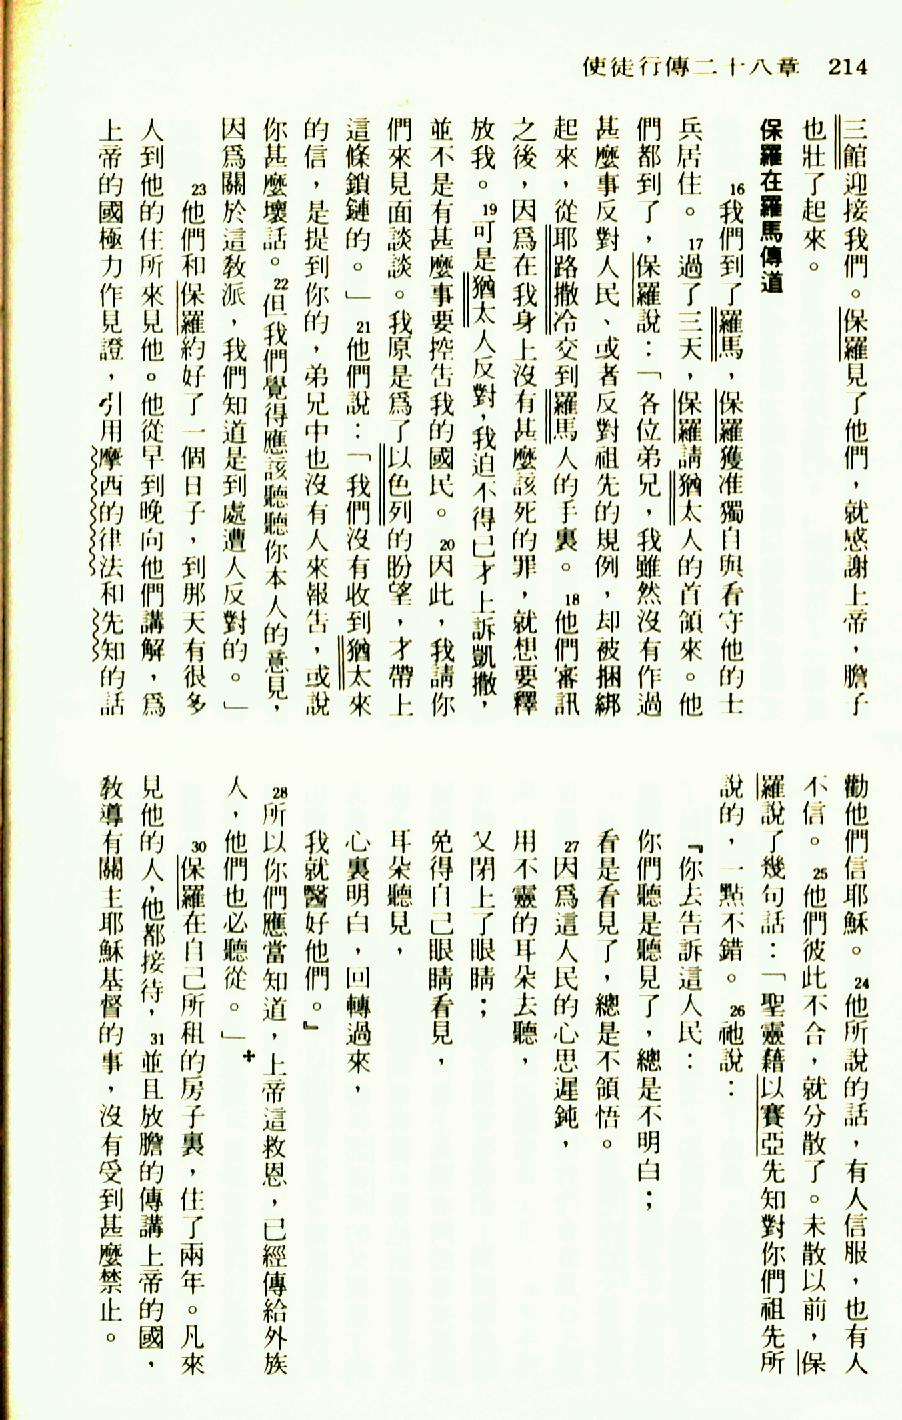 使徒行傳二十八章　214
三館迎接我們。保羅見了他們，就感謝上帝，膽子
也壯了起來。
保羅在羅馬傳道
16我們到了羅馬，保羅獲准獨自與看守他的士
兵居住。17過了三天，保羅請猶太人的首領來。他
們都到了，保羅說：「各位弟兄，我雖然沒有作過
甚麼事反對人民、或者反對祖先的規例，却被捆綁
起來，從耶路撒冷交到羅馬人的手裏。18他們審訊
之後，因爲在我身上沒有甚麼該死的罪，就想要釋
放我。19可是猶太人反對，我迫不得已才上訴凱撒，
並不是有甚麼事要控告我的國民。20因此，我請你
們來見面談談。我原是爲了以色列的盼望，才帶上
這條鎖鏈的。」21他們說：「我們沒有收到猶太來
的信，是提到你的，弟兄中也沒有人來報告，或說
你甚麼壞話。22但我們覺得應該聽聽你本人的意見，
因爲關於這教派，我們知道是到處遭人反對的。」
23他們和保羅約好了一個日子，到那天有很多
人到他的住所來見他。他從早到晚向他們講解，爲
上帝的國極力作見證，引用摩西的律法和先知的話
勸他們信耶穌。24他所說的話，有人信服，也有人
不信。25他們彼此不合，就分散了。未散以前，保
羅說了幾句話：「聖靈藉以賽亞先知對你們祖先所
說的，一點不錯。26祂說：
『你去告訴這人民：
你們聽是聽見了，總是不明白；
看是看見了，總是不領悟。
27因爲這人民的心思遲鈍，
用不靈的耳朵去聽，
又閉上了眼睛；
免得自己眼睛看見，
耳朵聽見，
心裏明白，回轉過來，
我就醫好他們。』
28所以你們應當知道，上帝這救恩，已經傳給外族
人，他們也必聽從。」✚
30保羅在自己所租的房子裏，住了兩年。凡來
見他的人，他都接待，31並且放膽的傳講上帝的國，
教導有關主耶穌基督的事，沒有受到甚麼禁止。